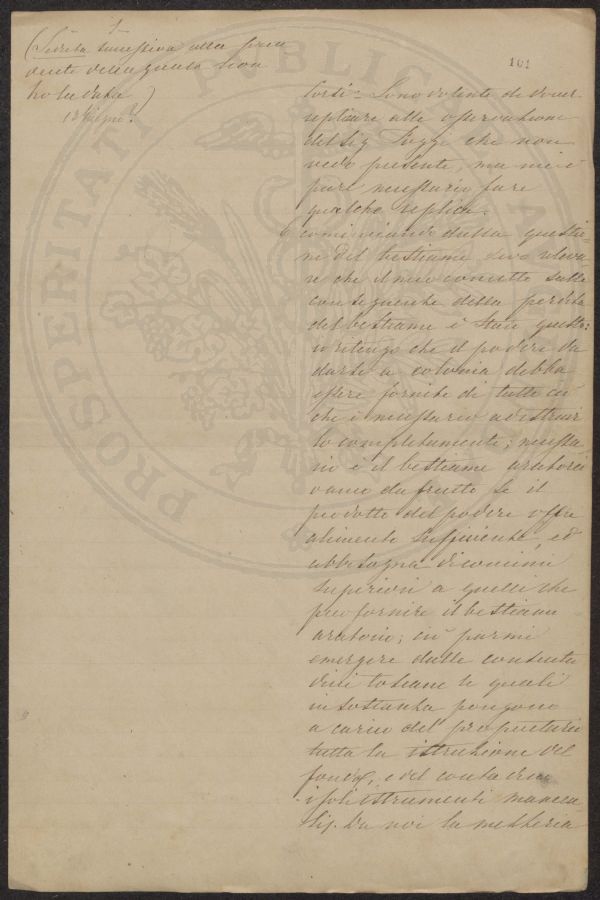 (Seduta successiva alla prece
dente della quale non
ho la data)
13 Giugno?
101
Corsi = Sono dolente di dover
replicare alle osservazioni
del Sig. Poggi che non
vedo presente, ma mi è
parso necessario fare
qualche replica.
Cominciando dalla questio
ne del bestiame, devo rileva
re che il mio concetto sulle
conseguenze della perdita
del bestiame è stato questo:
io ritengo che il podere da
darsi a colonia debba
essere fornito di tutto ciò
che è necessario ad istruir
lo completamente; necessa
rio è il bestiame aratorio
o anco da frutto se il
prodotto del podere offre
alimento sufficiente, ed
abbisogna di concimi
superiori a quelli che
può fornire il bestiame
aratorio; ciò parmi
emergere dalle consuetu
dini toscane le quali
in sostanza pongono
a carico del proprietario
tutta la istruzione del
fondo, e del contadino
i soli istrumenti manua
li. Da noi la mezzeria
PROSPERITATI PUBLICAE